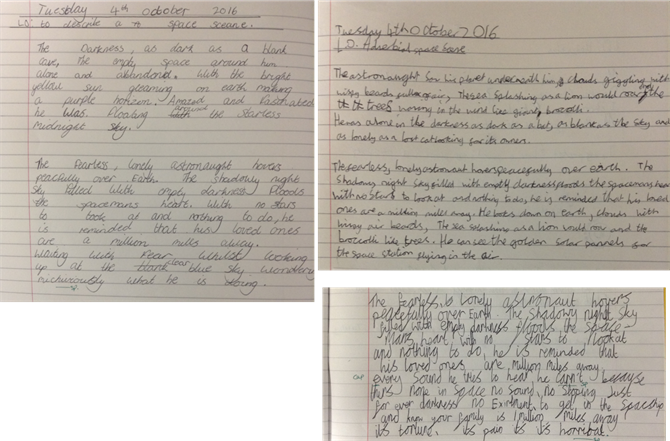 Tuesday 4th october 2016
LO: to describe a space sceane.
The Darkness, as dark as a blank
cave, the empty space around him
alone and abandond. With the bright
yellow sun gleaming on earth making
a purple horizon. Amazed and
he was floating the Starless
midnight Sky.
The Fearless, lonely astronaught hovers
peacefully over Earth. The Shadowly night
Sky filled with empty darkness floods
the spacemans heart. With no stars
to look at and nothing to do, he
is reminded that his loved ones
are a million mills away.
Waiting with Fear Whilst looking
up at the clear, blue sky wondering
what he is doing.
Tuesday 4th October 2016
LO. Adverbial space base
The astronaught Saw his planet underneath him, clouds
wispy beards, The sea splashing as a lion would roar,
trees waving in the wind like giant brocolli.
He was alone in the darkness as dark as a bat, as blank as the sky and
as lonely as a lost cat looking for its owner.
The fearless, lonely astronaut hovers peacefully over earth. The
shadowy night Sky filled with empty darkness floods the spacemans heart
with no stars to look at and nothing to do, he is reminded that his loved
ones are a million miles away. He looks down on earth, clouds with
beards, The sea splashing as a lion would and the
brocolli like trees. He can see the golden Solar pannels for
the space station flying in the air.
The fearless, lonely astronaut hovers
peacefully over Earth. The Shadowy night sky
filled with empty darkness floods the space-
mans heart, with no stars to look at
and nothing to do, he is reminded that
his loved ones are million miles away
every sound he tries to hear he cann't because
thers none in space no sound, no stopping Just
for ever darkness no to get in the Spaceship
and know your family is 1 million miles away
its torture, its pain its is horribal.